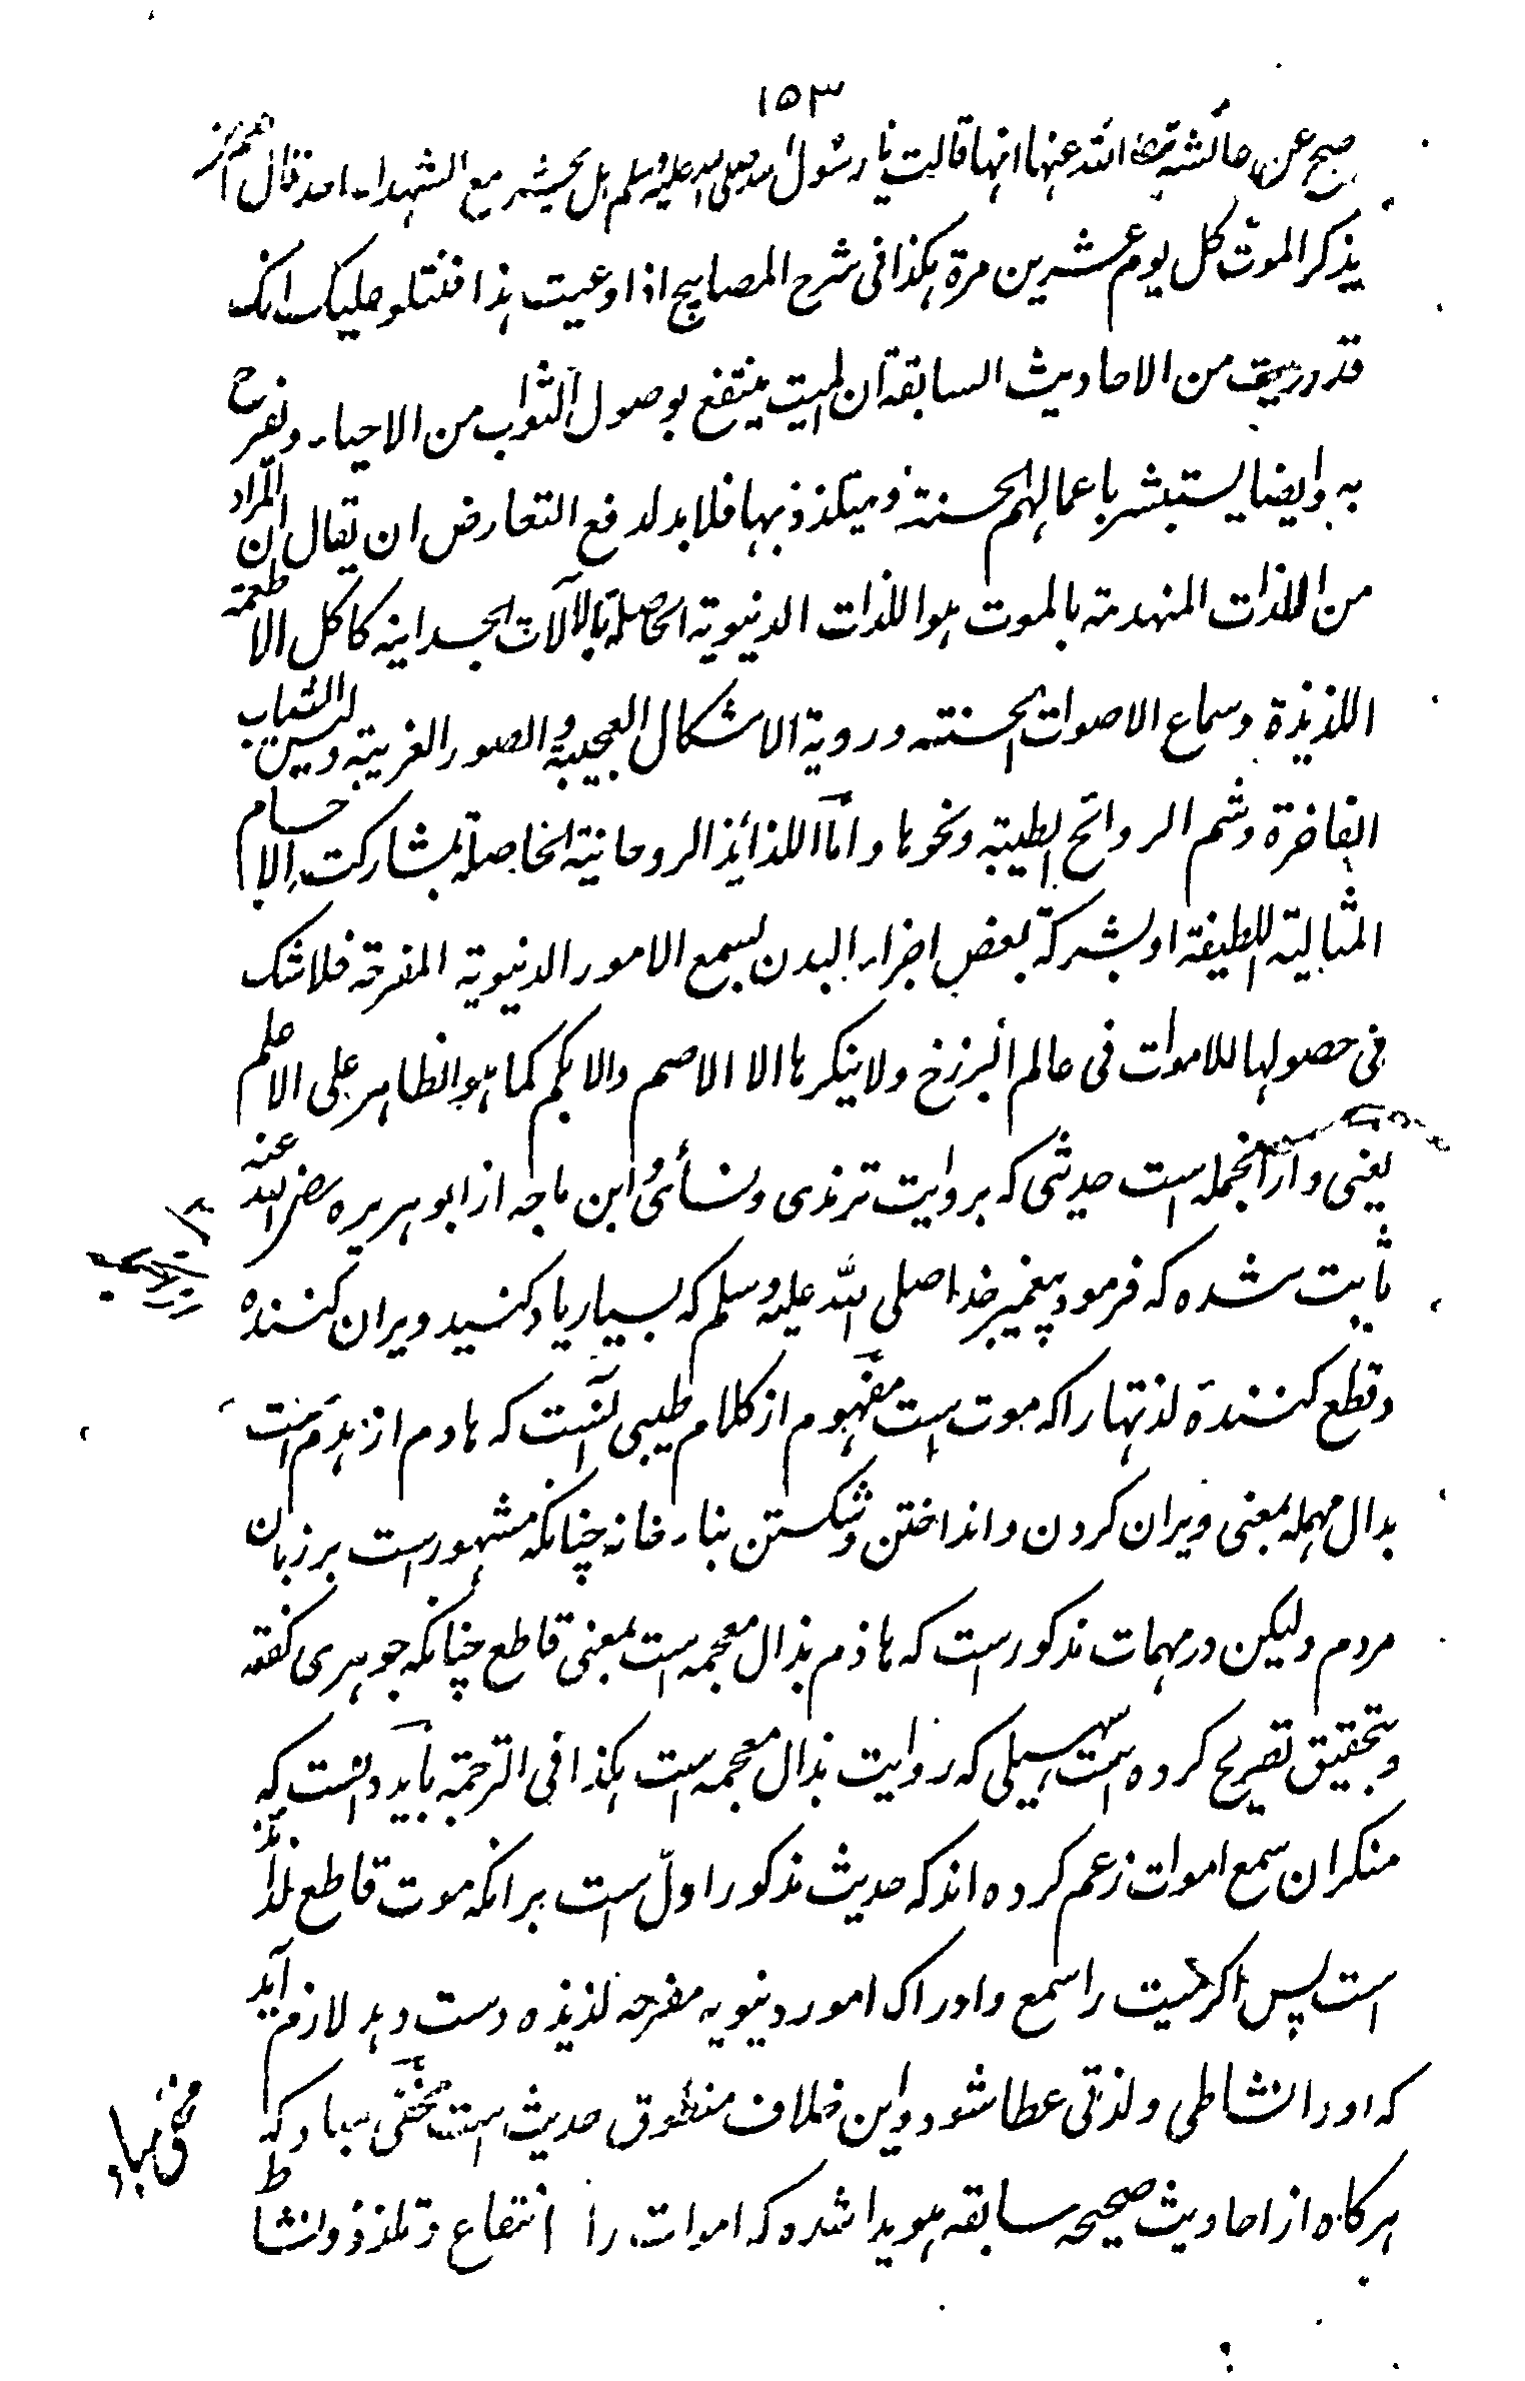 ۱۵۳
صح عن عائشة رضی الله عنها انها قالت یا رسول الله صلی الله علیه وسلم هل یحشر مع الشهداء احد قال نعم من
یذکر الموت کل یوم عشرین مرة هکذا فی شرح المصابیح اذا وعیت هذا فنتلو علیک انک
قد دریت من الاحادیث السابقة ان المیت ینتفع بوصول الثواب من الاحیاء ویفرح
به وایضا یستبشر باعمالهم الحسنة ویتلذذ بها فلابد لدفع التعارض ان یقال ان المراد
من اللذات المنهدمة بالموت هو اللذات الدنیویة الحاصلة بالآلات الجسدانیه کاکل الاطعمة
اللذیذة وسماع الاصوات الحسنة ورویة الاشکال العجیبة والصور الغریبة ولبس الثیاب
الفاخرة وشم الروائح الطیبة ونحوها واما اللذائذ الروحانیة الحاصلة بمشارکت الاجسام
المثالیة اللطیفة او بشرکة بعض اجزاء البدن بسمع الامور الدنیویة المفرحة فلا شک
فی حصولها للاموات فی عالم البرزخ ولا ینکرها الا الاصم والابکم کما هو الظاهر علی الاعلم
یعنی وازانجمله است حدیثی که بروایت ترمذی ونسائی وابن ماجه از ابو هریره رضی الله عنه
ثابت شده که فرمود پیغمبر خدا صلی الله علیه وسلم که بسیار یاد کنید ویران کننده
وقطع کننده لذتها را که موت است مفهوم از کلام طیبی آنست که هادم از هدم است
بدال مهمله بمعنی ویران کردن وانداختن وشکستن بناء خانه چنانکه مشهور است بر زبان
مردم ولیکن در مهمات مذکور است که هاذم بذال معجمه است بمعنی قاطع چنانکه جوهری گفته
وبتحقیق تصریح کرده است سهیلی که روایت بذال معجمه است هکذا فی الترجمة باید دانست که
منکران سمع اموات زعم کرده اند که حدیث مذکور اول است برانکه موت قاطع لذائذ
است پس اگر میت را سمع وادراک امور دنیویه مفرحه لذیذه دست دهد لازم آید
که او را نشاطی ولذتی عطا شود واین خلاف منطوق حدیث است مخفی مباد که
مخفی مباد
هرگاه از احادیث صحیحه سابقه هویدا شده که اموات را انتفاع وتلذذ ونشاط